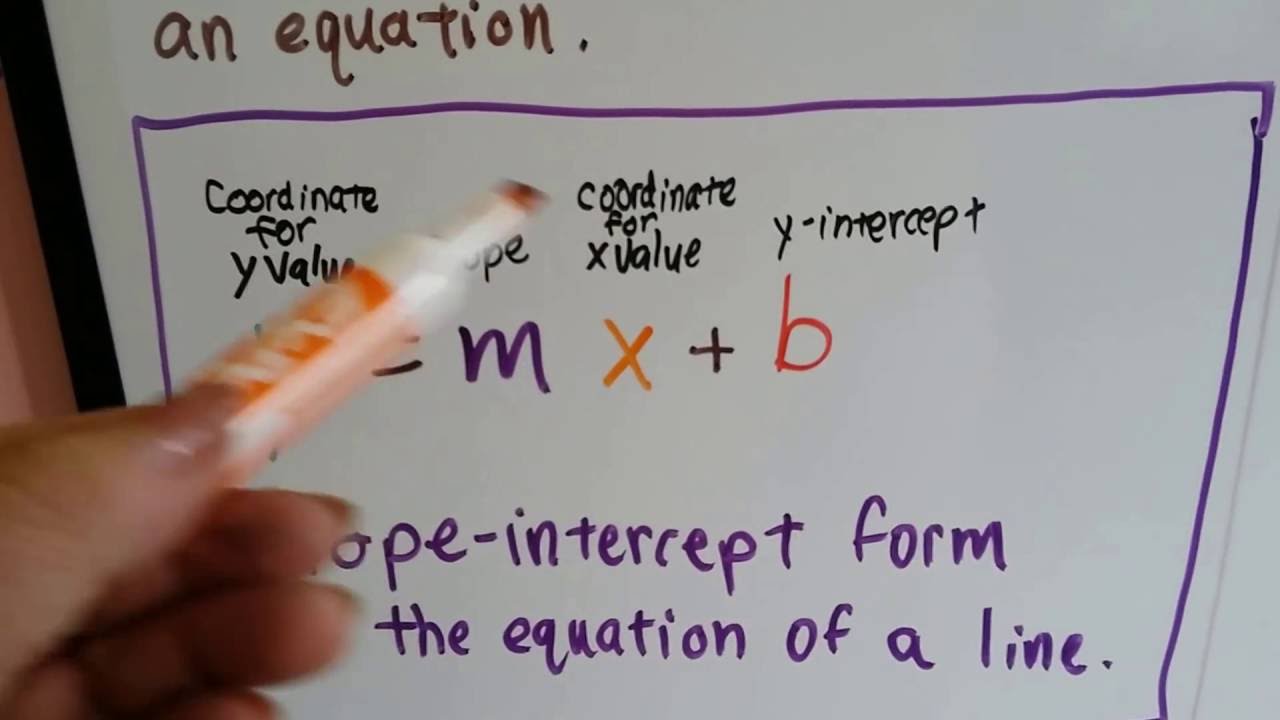 an equation.
Coordinate
for
y value
coordinate
for
x value
y-intercept
= m x + b
ope-intercept form
the equation of a line.